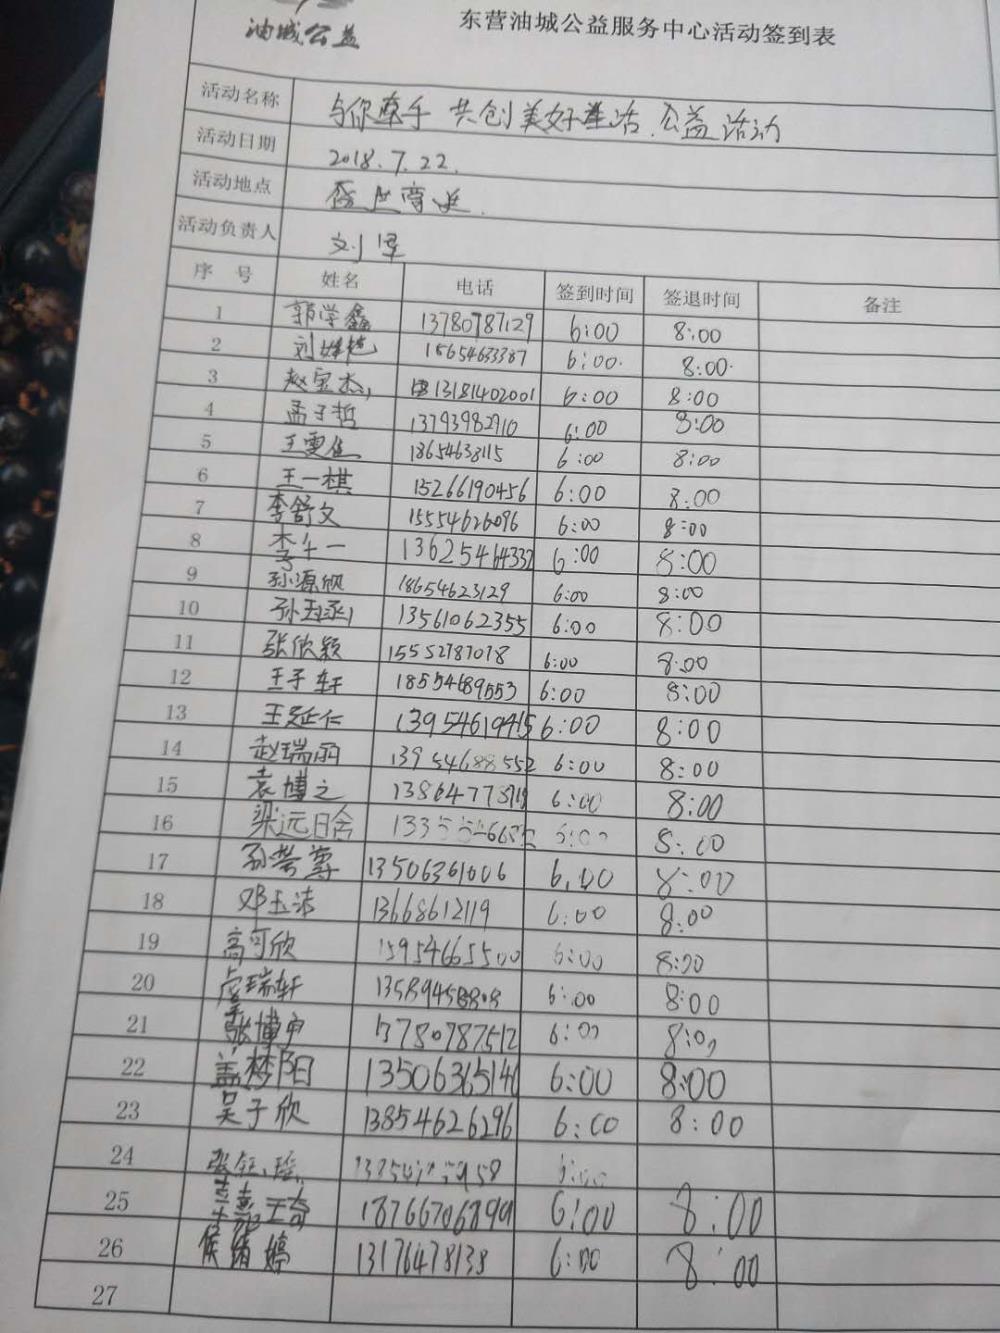 油城公益
东营油城公益服务中心活动签到表
活动名称 与你牵手 共创美好生活 公益活动
活动日期 2018.7.22.
活动地点
活动负责人 刘军
序号 姓名 电话 签到时间 签退时间 备注
1 郭学鑫 13780787129 6:00 8:00
2 18654633387 6:00. 8:00.
3 赵宝杰 13181402001 6:00 8:00
4 孟子哲 13793982910 6:00 8:00
5 王雯佳 18654638115 6:00 8:00
6 王一棋 15266190456 6:00 8:00
7 李舒文 15554626096 6:00 8:00
8 13625464332 6:00 8:00
9 孙源欣 18654623129 6:00 8:00
10 13561062355 6:00 8:00
11 张欣颖 15552787078 6:00 8:00
12 王子轩 18554689553 6:00 8:00
13 王延仁 13954619415 6:00 8:00
14 赵瑞丽 13954688552 6:00 8:00
15 袁博之 6:00 8:00
16 6:00 8:00
17 13506361006 6:00 8:00
18 邓玉洁 13668612119 6:00 8:00
19 高可欣 15954665500 6:00 8:00
20 6:00 8:00
21 13780787512 6:00 8:00
22 盖梦阳 13506365146 6:00 8:00
23 吴子欣 13854626296 6:00 8:00
24 6:00
25 6:00 8:00
26 侯婧婷 13176478138 6:00 8:00
27